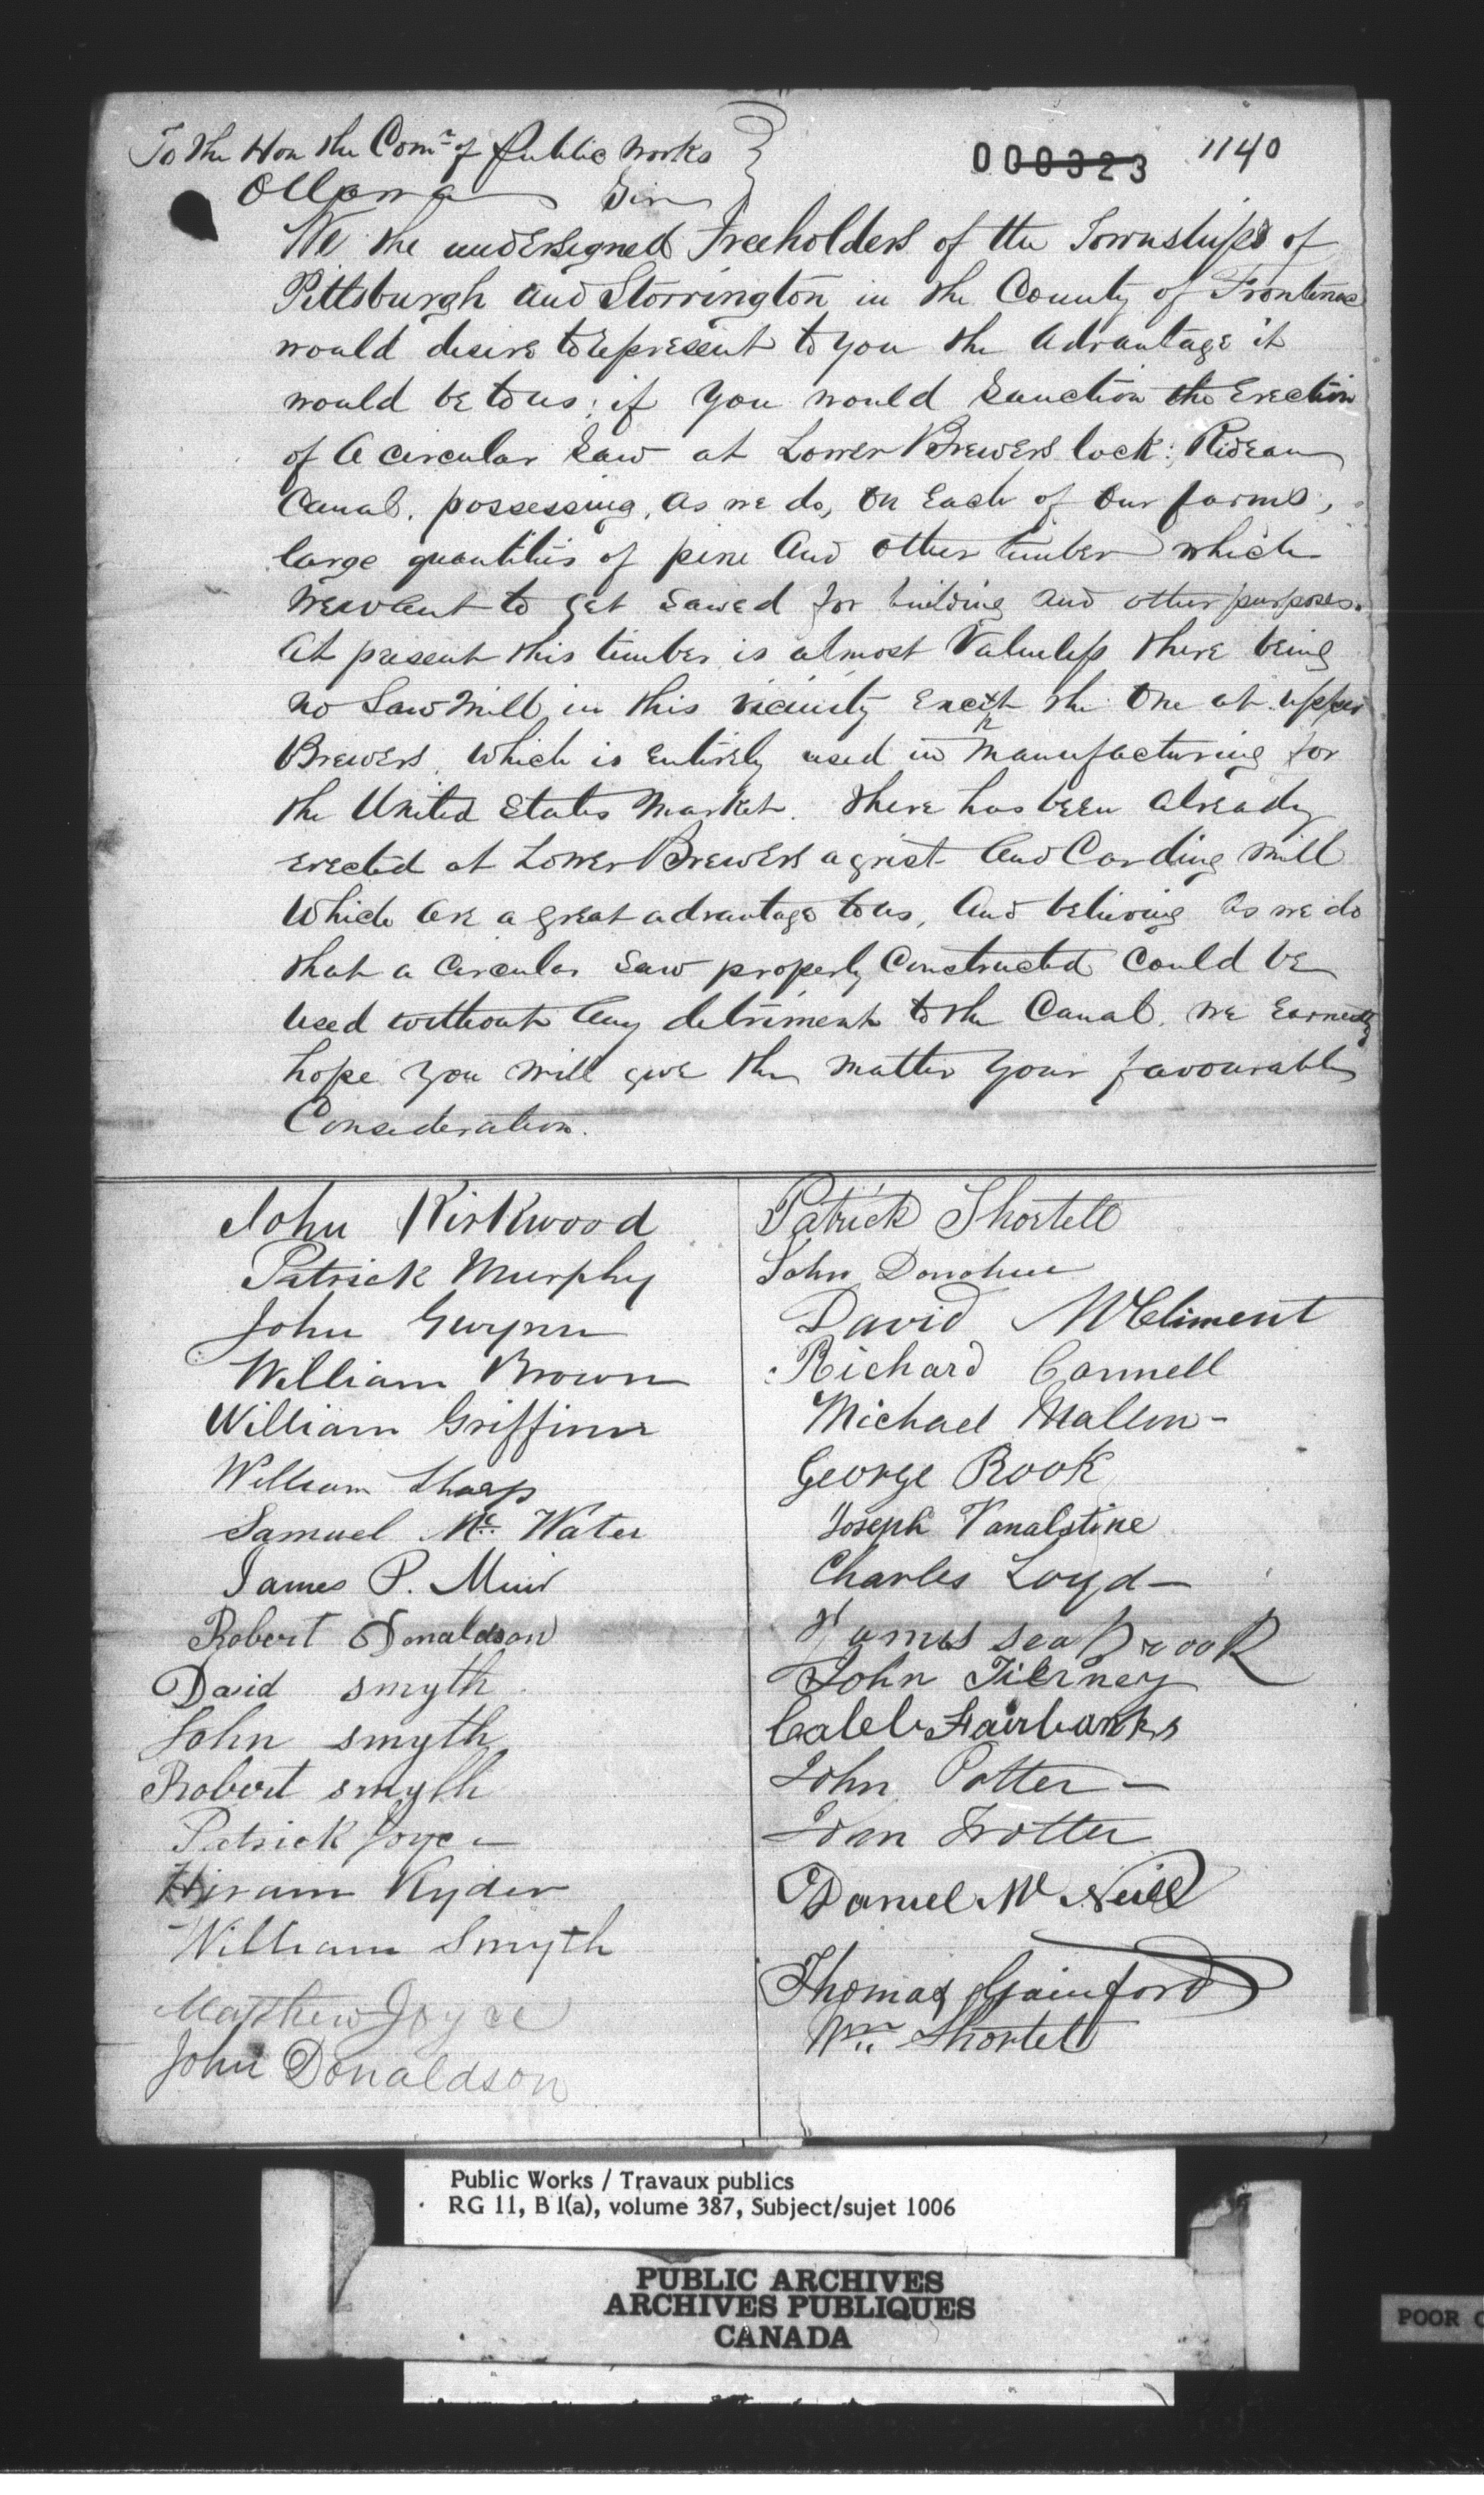 To the Hon the Comr of Public Works
000323 1140
Ottawa Sir
We the undersigned Freeholders of the Townships of
Pittsburgh and Storrington in the County of Frontenac
would desire to represent to you the advantage it
would be to us; if you would Sanction the Erection
of a circular Saw at Lower Brewers lock; Rideau
Canal, possessing, as we do, on Each of our farms,
large quantities of pine and other timber which
we want to get sawed for building and other purposes.
At present this timber is almost Valueless there being
no Saw Mill in this vicinity Except the One at upper
Brewers, which is Entirely used in manufacturing for
the United States Market. There has been already
erected at Lower Brewers a grist and Carding Mill
which are a great advantage to us, and believing as we do
that a Circular Saw properly Constructed Could be
used without any detriment to the Canal, we Earnestly
hope you will give the matter your favourable
Consideration.
John Kirkwood
Patrick Murphy
John Gwynn
William Brown
William Griffinn
William Sharp
Samuel Mc Water
James P. Muir
Robert Donaldson
David smyth
John smyth
Robert smyth
Patrick Joyce
Hiram Ryder
William Smyth
Matthew Joyce
John Donaldson
Patrick Shortell
John Donohue
David McCliment
Richard Connell
Michael Mallon
George Rook
Joseph Vanalstine
Charles Loyd
James seabrook
John Tierney
Caleb Fairbanks
John Potter
John Trotter
Daniel Mc Neill
Thomas Gainford
Wm Shortell
Public Works / Travaux publics
RG 11, B 1(a), volume 387, Subject/sujet 1006
PUBLIC ARCHIVES
ARCHIVES PUBLIQUES
CANADA
POOR